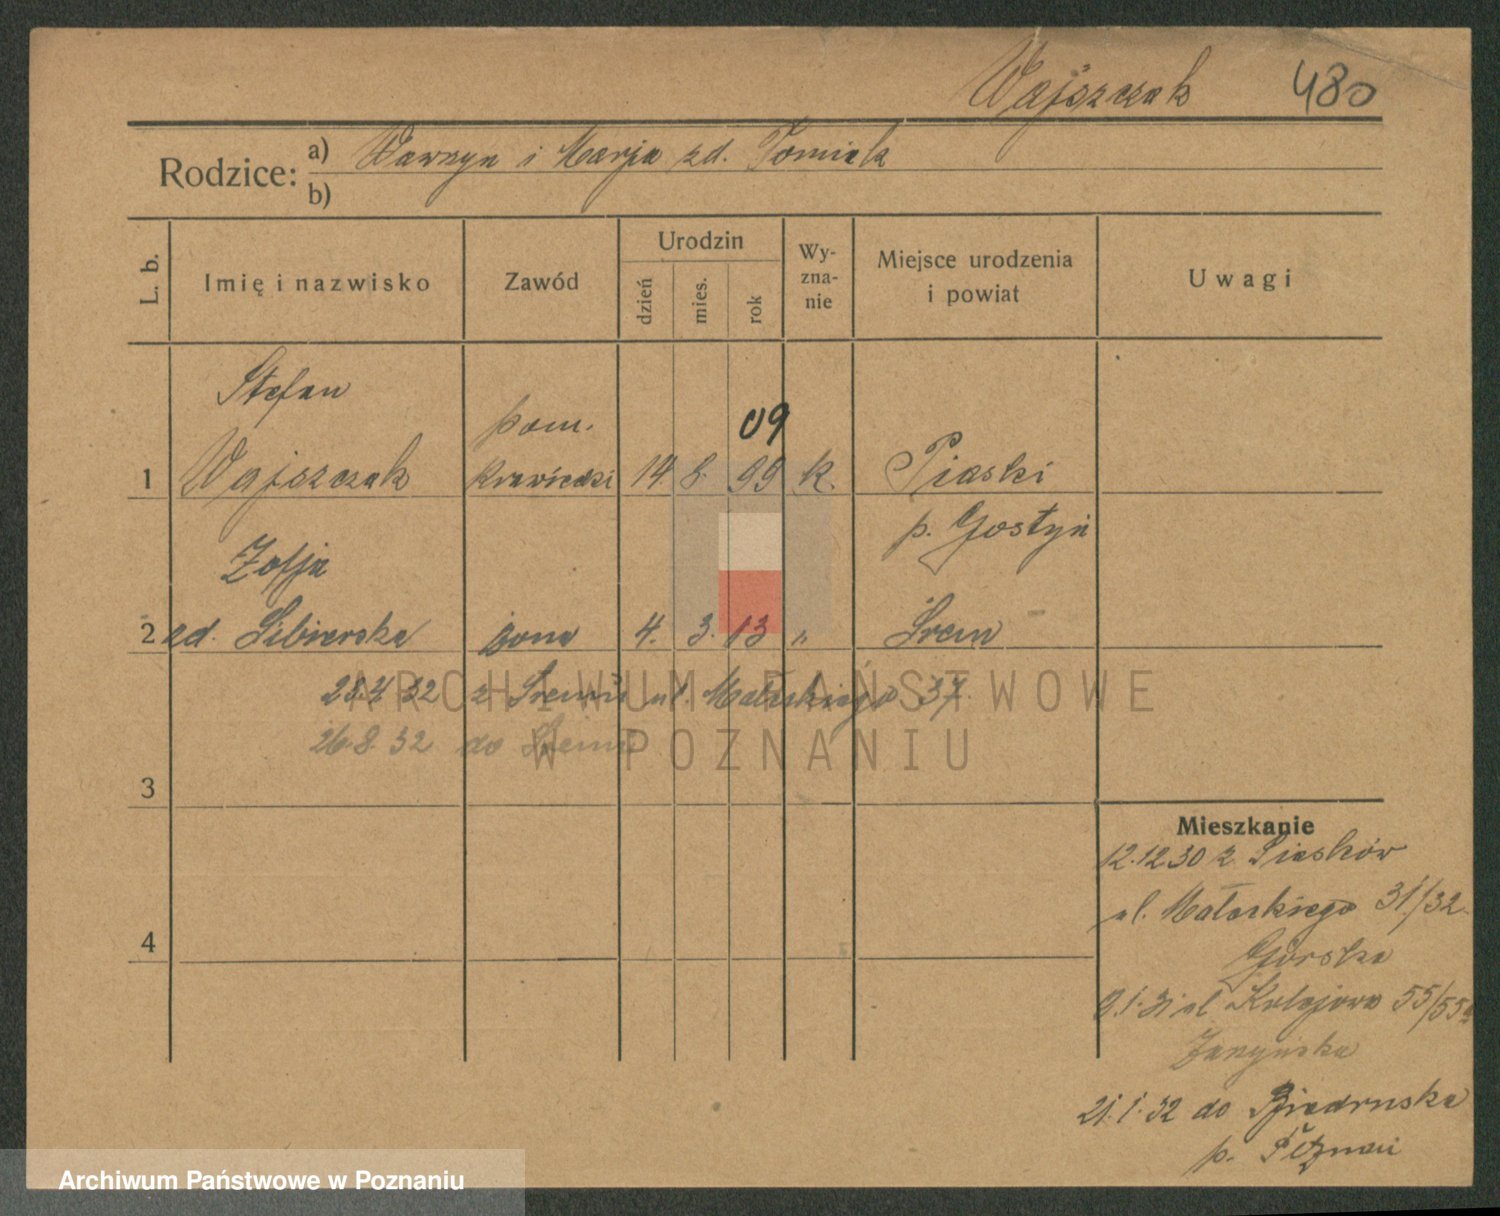 Wajszczak 480
Rodzice: a) Wawrzyn i Marja zd. Tomiak
b)
L. b. Imię i nazwisko Zawód Urodzin dzień mies. rok Wy-zna-nie Miejsce urodzenia i powiat Uwagi
Stefan
pom. 09
1 Wajszczak krawiecki 14. 8. 99 k. Piaski
p. Gostyń
Zofja
2 zd. Sibierska żona 4. 3. 13 " Śrem
32 z Śremu ul. Małeckiego 37.
26.8.32 do Śremu
3
Mieszkanie
12.12.30 z Piasków
ul. Małeckiego 31/32
4
Górska
31 ul Kolejowa 55/55a
21.1.32 do Biedruska
p. Poznań
ARCHIWUM PAŃSTWOWE
W POZNANIU
Archiwum Państwowe w Poznaniu